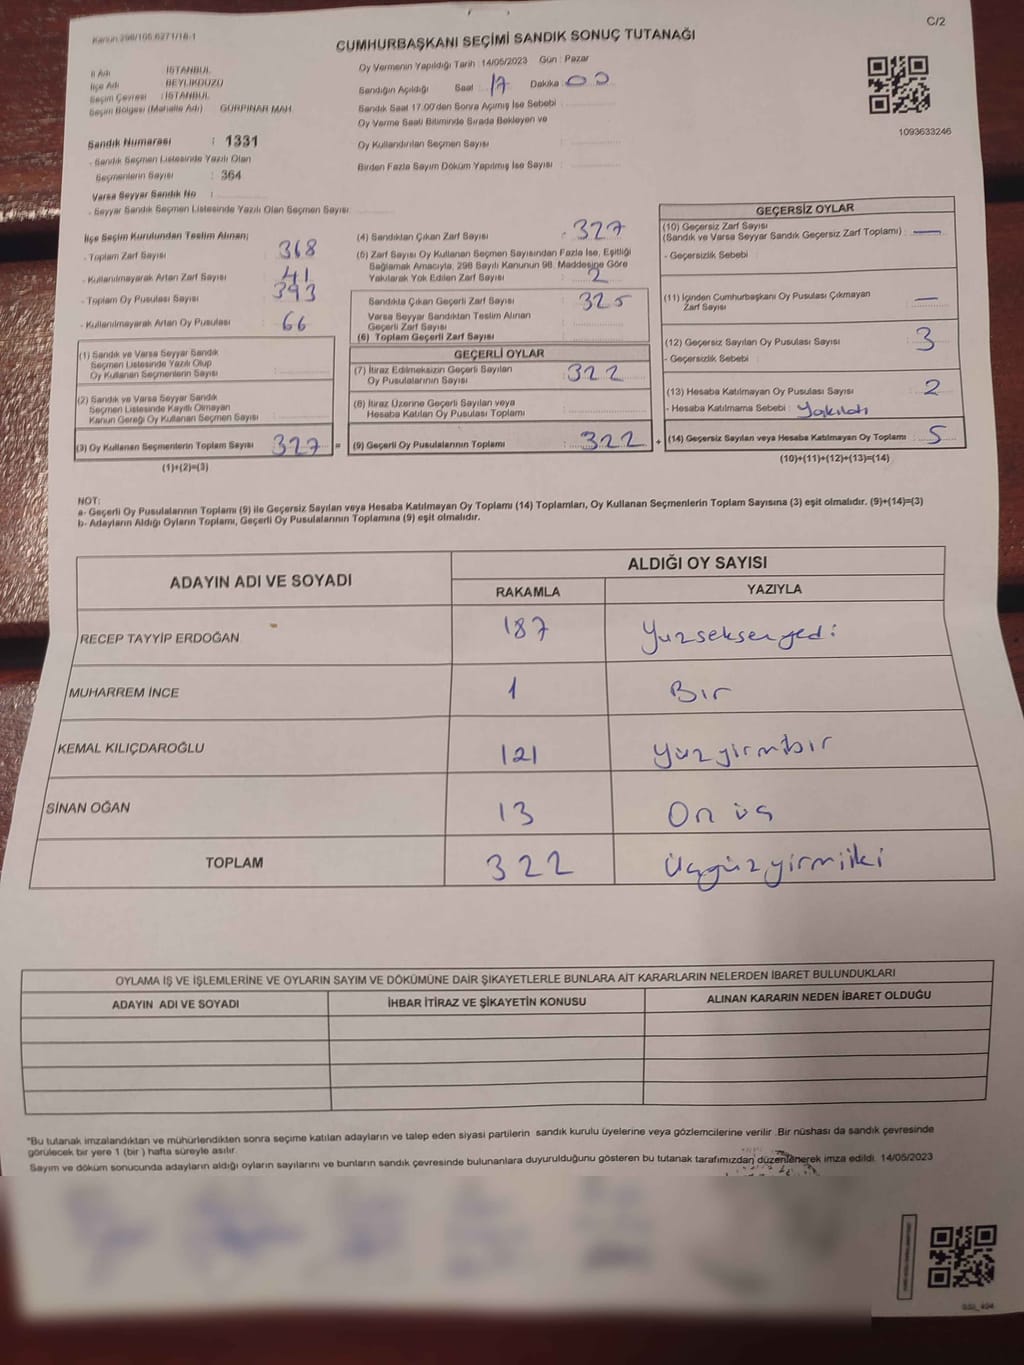 Kanun 298/105.6271/18-1
C/2
CUMHURBAŞKANI SEÇİMİ SANDIK SONUÇ TUTANAĞI
İl Adı : İSTANBUL
İlçe Adı : BEYLİKDÜZÜ
Seçim Çevresi : İSTANBUL
Seçim Bölgesi (Mahalle Adı) : GÜRPINAR MAH.
Sandık Numarası : 1331
- Sandık Seçmen Listesinde Yazılı Olan
Seçmenlerin Sayısı : 364
Varsa Seyyar Sandık No :
- Seyyar Sandık Seçmen Listesinde Yazılı Olan Seçmen Sayısı
Oy Vermenin Yapıldığı Tarih : 14/05/2023 Gün : Pazar
Sandığın Açıldığı Saat : 17 Dakika : 00
Sandık Saat 17.00'den Sonra Açımış İse Sebebi
Oy Verme Saati Bitiminde Sırada Bekleyen ve
Oy Kullandırılan Seçmen Sayısı :
Birden Fazla Sayım Döküm Yapılmış İse Sayısı :
1093633246
İlçe Seçim Kurulundan Teslim Alınan;
- Toplam Zarf Sayısı : 368
- Kullanılmayarak Artan Zarf Sayısı : 41
- Toplam Oy Pusulası Sayısı : 393
- Kullanılmayarak Artan Oy Pusulası : 66
(1) Sandık ve Varsa Seyyar Sandık
Seçmen Listesinde Yazılı Olup
Oy Kullanan Seçmenlerin Sayısı :
(2) Sandık ve Varsa Seyyar Sandık
Seçmen Listesinde Kayıtlı Olmayan
Kanun Gereği Oy Kullanan Seçmen Sayısı :
(3) Oy Kullanan Seçmenlerin Toplam Sayısı : 327 =
(1)+(2)=(3)
(4) Sandıktan Çıkan Zarf Sayısı : 327
(5) Zarf Sayısı Oy Kullanan Seçmen Sayısından Fazla İse, Eşitliği
Sağlamak Amacıyla, 298 Sayılı Kanunun 98. Maddesine Göre
Yakılarak Yok Edilen Zarf Sayısı : 2
Sandıkta Çıkan Geçerli Zarf Sayısı : 325
Varsa Seyyar Sandıktan Teslim Alınan
Geçerli Zarf Sayısı :
(6) Toplam Geçerli Zarf Sayısı
GEÇERLİ OYLAR
(7) İtiraz Edilmeksizin Geçerli Sayılan
Oy Pusulalarının Sayısı : 322
(8) İtiraz Üzerine Geçerli Sayılan veya
Hesaba Katılan Oy Pusulası Toplamı :
(9) Geçerli Oy Pusulalarının Toplamı : 322 +
GEÇERSİZ OYLAR
(10) Geçersiz Zarf Sayısı
(Sandık ve Varsa Seyyar Sandık Geçersiz Zarf Toplamı) : —
- Geçersizlik Sebebi :
(11) İçinden Cumhurbaşkanı Oy Pusulası Çıkmayan
Zarf Sayısı : —
(12) Geçersiz Sayılan Oy Pusulası Sayısı : 3
- Geçersizlik Sebebi :
(13) Hesaba Katılmayan Oy Pusulası Sayısı : 2
- Hesaba Katılmama Sebebi : Yakıldı
(14) Geçersiz Sayılan veya Hesaba Katılmayan Oy Toplamı : 5
(10)+(11)+(12)+(13)=(14)
NOT:
a- Geçerli Oy Pusulalarının Toplamı (9) ile Geçersiz Sayılan veya Hesaba Katılmayan Oy Toplamı (14) Toplamları, Oy Kullanan Seçmenlerin Toplam Sayısına (3) eşit olmalıdır. (9)+(14)=(3)
b- Adayların Aldığı Oyların Toplamı, Geçerli Oy Pusulalarının Toplamına (9) eşit olmalıdır.
ADAYIN ADI VE SOYADI
ALDIĞI OY SAYISI
RAKAMLA YAZIYLA
RECEP TAYYİP ERDOĞAN 187 Yuzseksenyedi
MUHARREM İNCE 1 Bır
KEMAL KILIÇDAROĞLU 121 Yuzyirmıbır
SİNAN OĞAN 13 On üç
TOPLAM 322 Üçyüzyirmiiki
OYLAMA İŞ VE İŞLEMLERİNE VE OYLARIN SAYIM VE DÖKÜMÜNE DAİR ŞİKAYETLERLE BUNLARA AİT KARARLARIN NELERDEN İBARET BULUNDUKLARI
ADAYIN ADI VE SOYADI İHBAR İTİRAZ VE ŞİKAYETİN KONUSU ALINAN KARARIN NEDEN İBARET OLDUĞU
*Bu tutanak imzalandıktan ve mühürlendikten sonra seçime katılan adayların ve talep eden siyasi partilerin sandık kurulu üyelerine veya gözlemcilerine verilir. Bir nüshası da sandık çevresinde
görülecek bir yere 1 (bir ) hafta süreyle asılır.
Sayım ve döküm sonucunda adayların aldığı oyların sayılarını ve bunların sandık çevresinde bulunanlara duyurulduğunu gösteren bu tutanak tarafımızdan düzenlenerek imza edildi. 14/05/2023